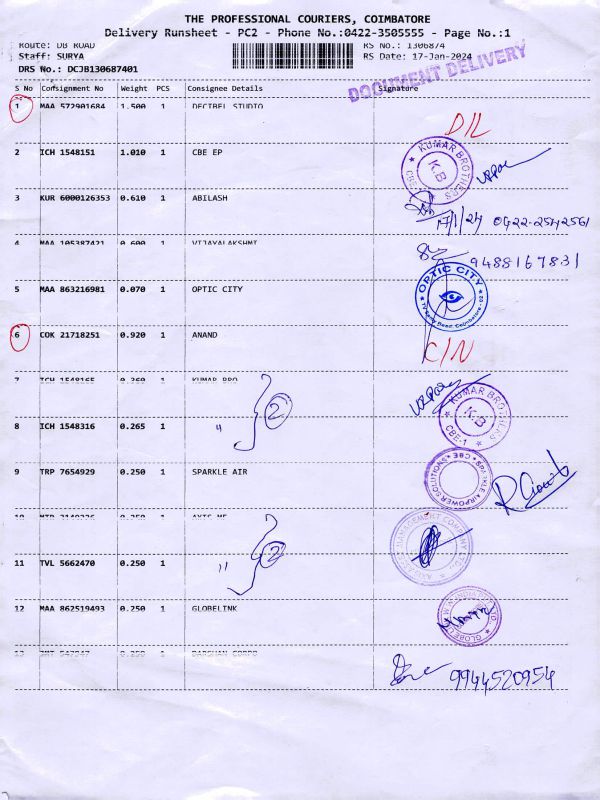 THE PROFESSIONAL COURIERS, COIMBATORE
Delivery Runsheet - PC2 - Phone No.:0422-3505555 - Page No.:1
Route: DB ROAD RS No.: 1306874
Staff: SURYA RS Date: 17-Jan-2024
DRS No.: DCJB130687401
DOCUMENT DELIVERY
S No Consignment No Weight PCS Consignee Details Signature
1 MAA 572901684 1.500 1 DECIBEL STUDIO
D/L
2 ICH 1548151 1.010 1 CBE EP
KUMAR BROTHERS K.B CBE-1
3 KUR 6000126353 0.610 1 ABILASH
17/1/24 0422-2542561
4 MAA 105387421 0.600 1 VIJAYALAKSHMI
9488167831
5 MAA 863216981 0.070 1 OPTIC CITY
OPTIC CITY
6 COK 21718251 0.920 1 ANAND
C/N
7 ICH 1548165 0.260 1 KUMAR BRO
2
KUMAR BROTHERS K.B CBE-1
8 ICH 1548316 0.265 1 "
9 TRP 7654929 0.250 1 SPARKLE AIR
SPARKLE AIRPOWER SOLUTIONS CBE
10 0.250 1 AXIS ME
2
MANAGEMENT COMPANY
11 TVL 5662470 0.250 1 "
12 MAA 862519493 0.090 1 GLOBELINK
13 0.250 1 DARSHAN CORPO
9944520954